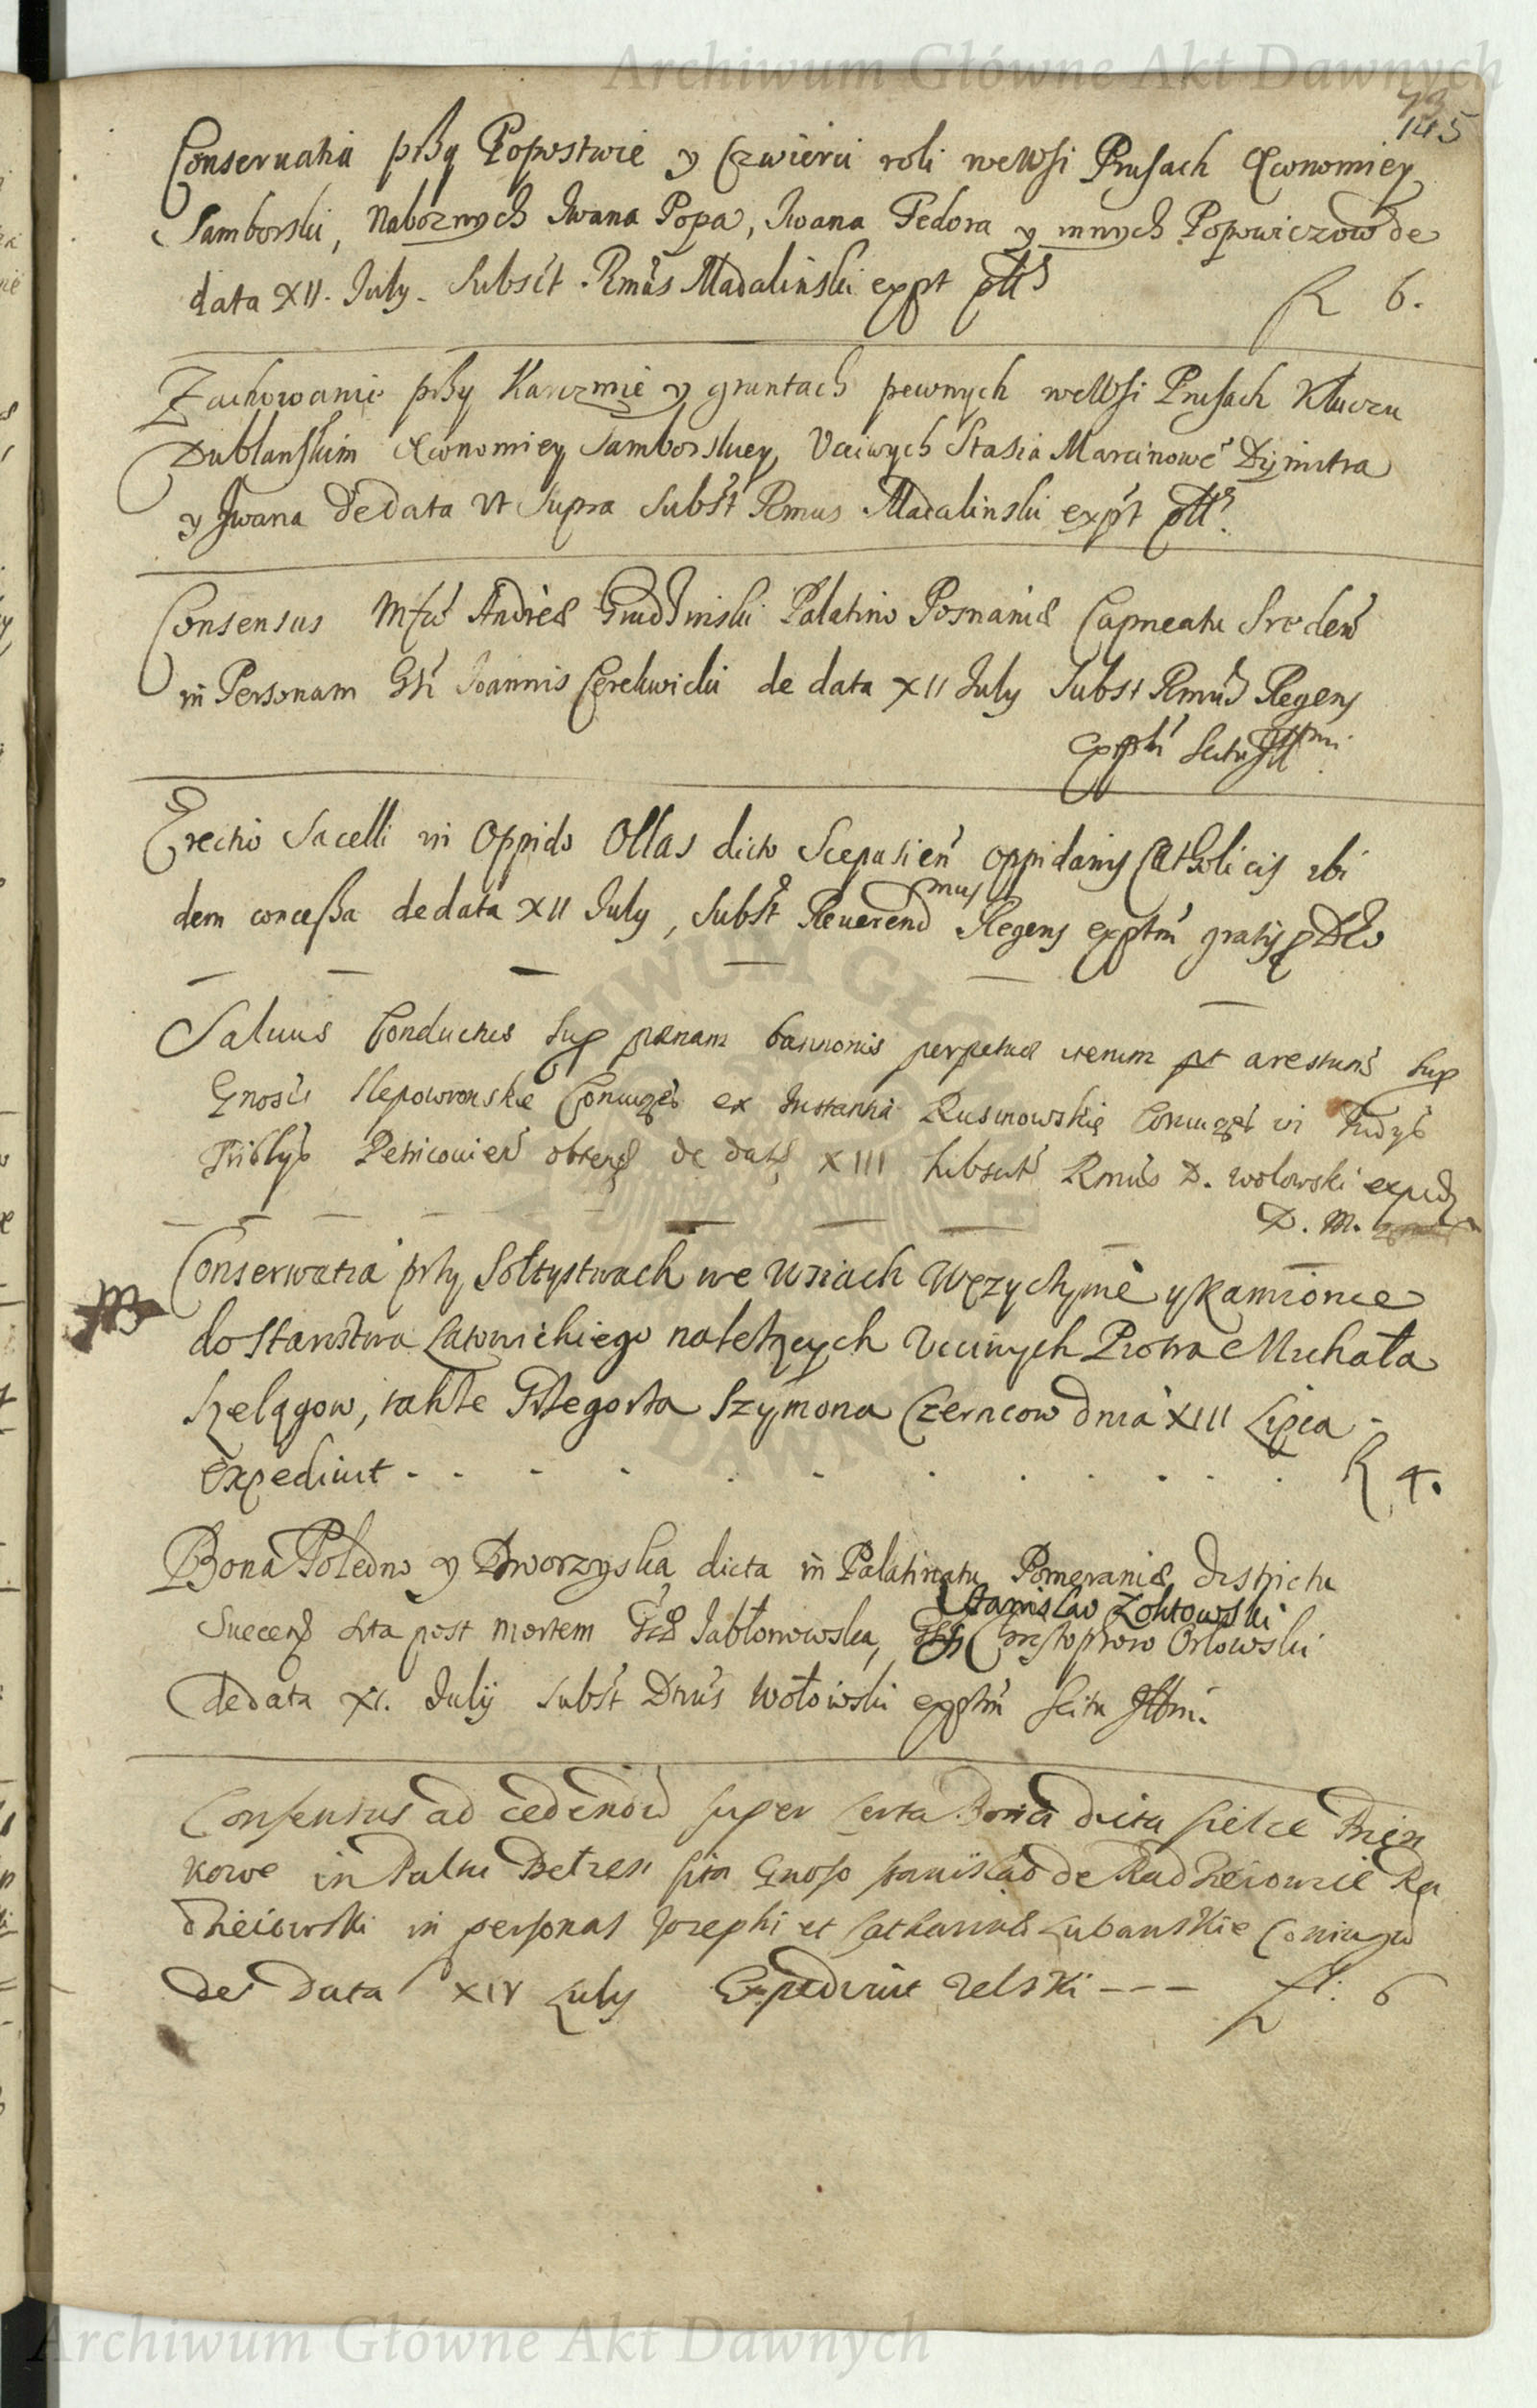 Archiwum Główne Akt Dawnych
73
145
Conseruatia przy Popostwie y Czwierci roli we Wsi Prusach Œconomiey
Samborski, Naboznych Iwana Popa, Iwana Fedora y innych Popowiczow de
data XII. July. Subsct. Rmus Madalinski expt
R 6.
Zachowanie przy Karczmie y gruntach pewnych we Wsi Prusach Kluczu
Dublanskim Œconomiey Samborskiey, Vcciwych Stasia Marcinowe Dymitra
y Iwana de data Vt supra Subst Rmus Madalinski expt
Consensus Andreæ Grudzinski Palatino Posnaniæ Capneatu Sreden
in Personam Ioannis Cerekwicki de data XII July Subst Rmus Regens
exptm Scitu
Erectio Sacelli in Oppido Ollas dicto Scepusien oppidanis Catholicis ibi
dem concessa de data XII July, Subst Reuerendmus Regens exptm gratis p Deo
Saluus Conductus sup pœnam bannonis perpetuæ arestuns sup
Slepowronskie Coniuges ex Instantia Rusinowskie Coniuges in Iudys
Petricouien de data XIII Rmus D. Wolowski exped
D. M.
Conserwatia przy Sołtystwach we Wsiach Węzyczynie y Kamionce
do Starostwa Latowickiego należących Vcciwych Piotra Michała
Szelągow, także Grzegorza Szymona Czerncow dnia XIII Lipca
Expediuit - - - - - - - R 4.
Bona Poledno y Dworzyska dicta in Palatinatu Pomeraniæ districtu
Stanislao Zoltowski
Sueceń sita post mortem Jabłonowska, Christophoro Orłowski
de data XI. Julij Subst Dnus Wołowski exptm scitu Illmi.
Consensus ad cedendū super certa Bona dicta Sielce Bień
kowe in Paltu Belzen sita Gnoso Stanislao de Radzieiowice Ra
dzieiowski in personas Josephi et Catharinæ Lubanskie Coniugū
de Data XIV July Expediuit Zelski --- fl: 6
Archiwum Główne Akt Dawnych